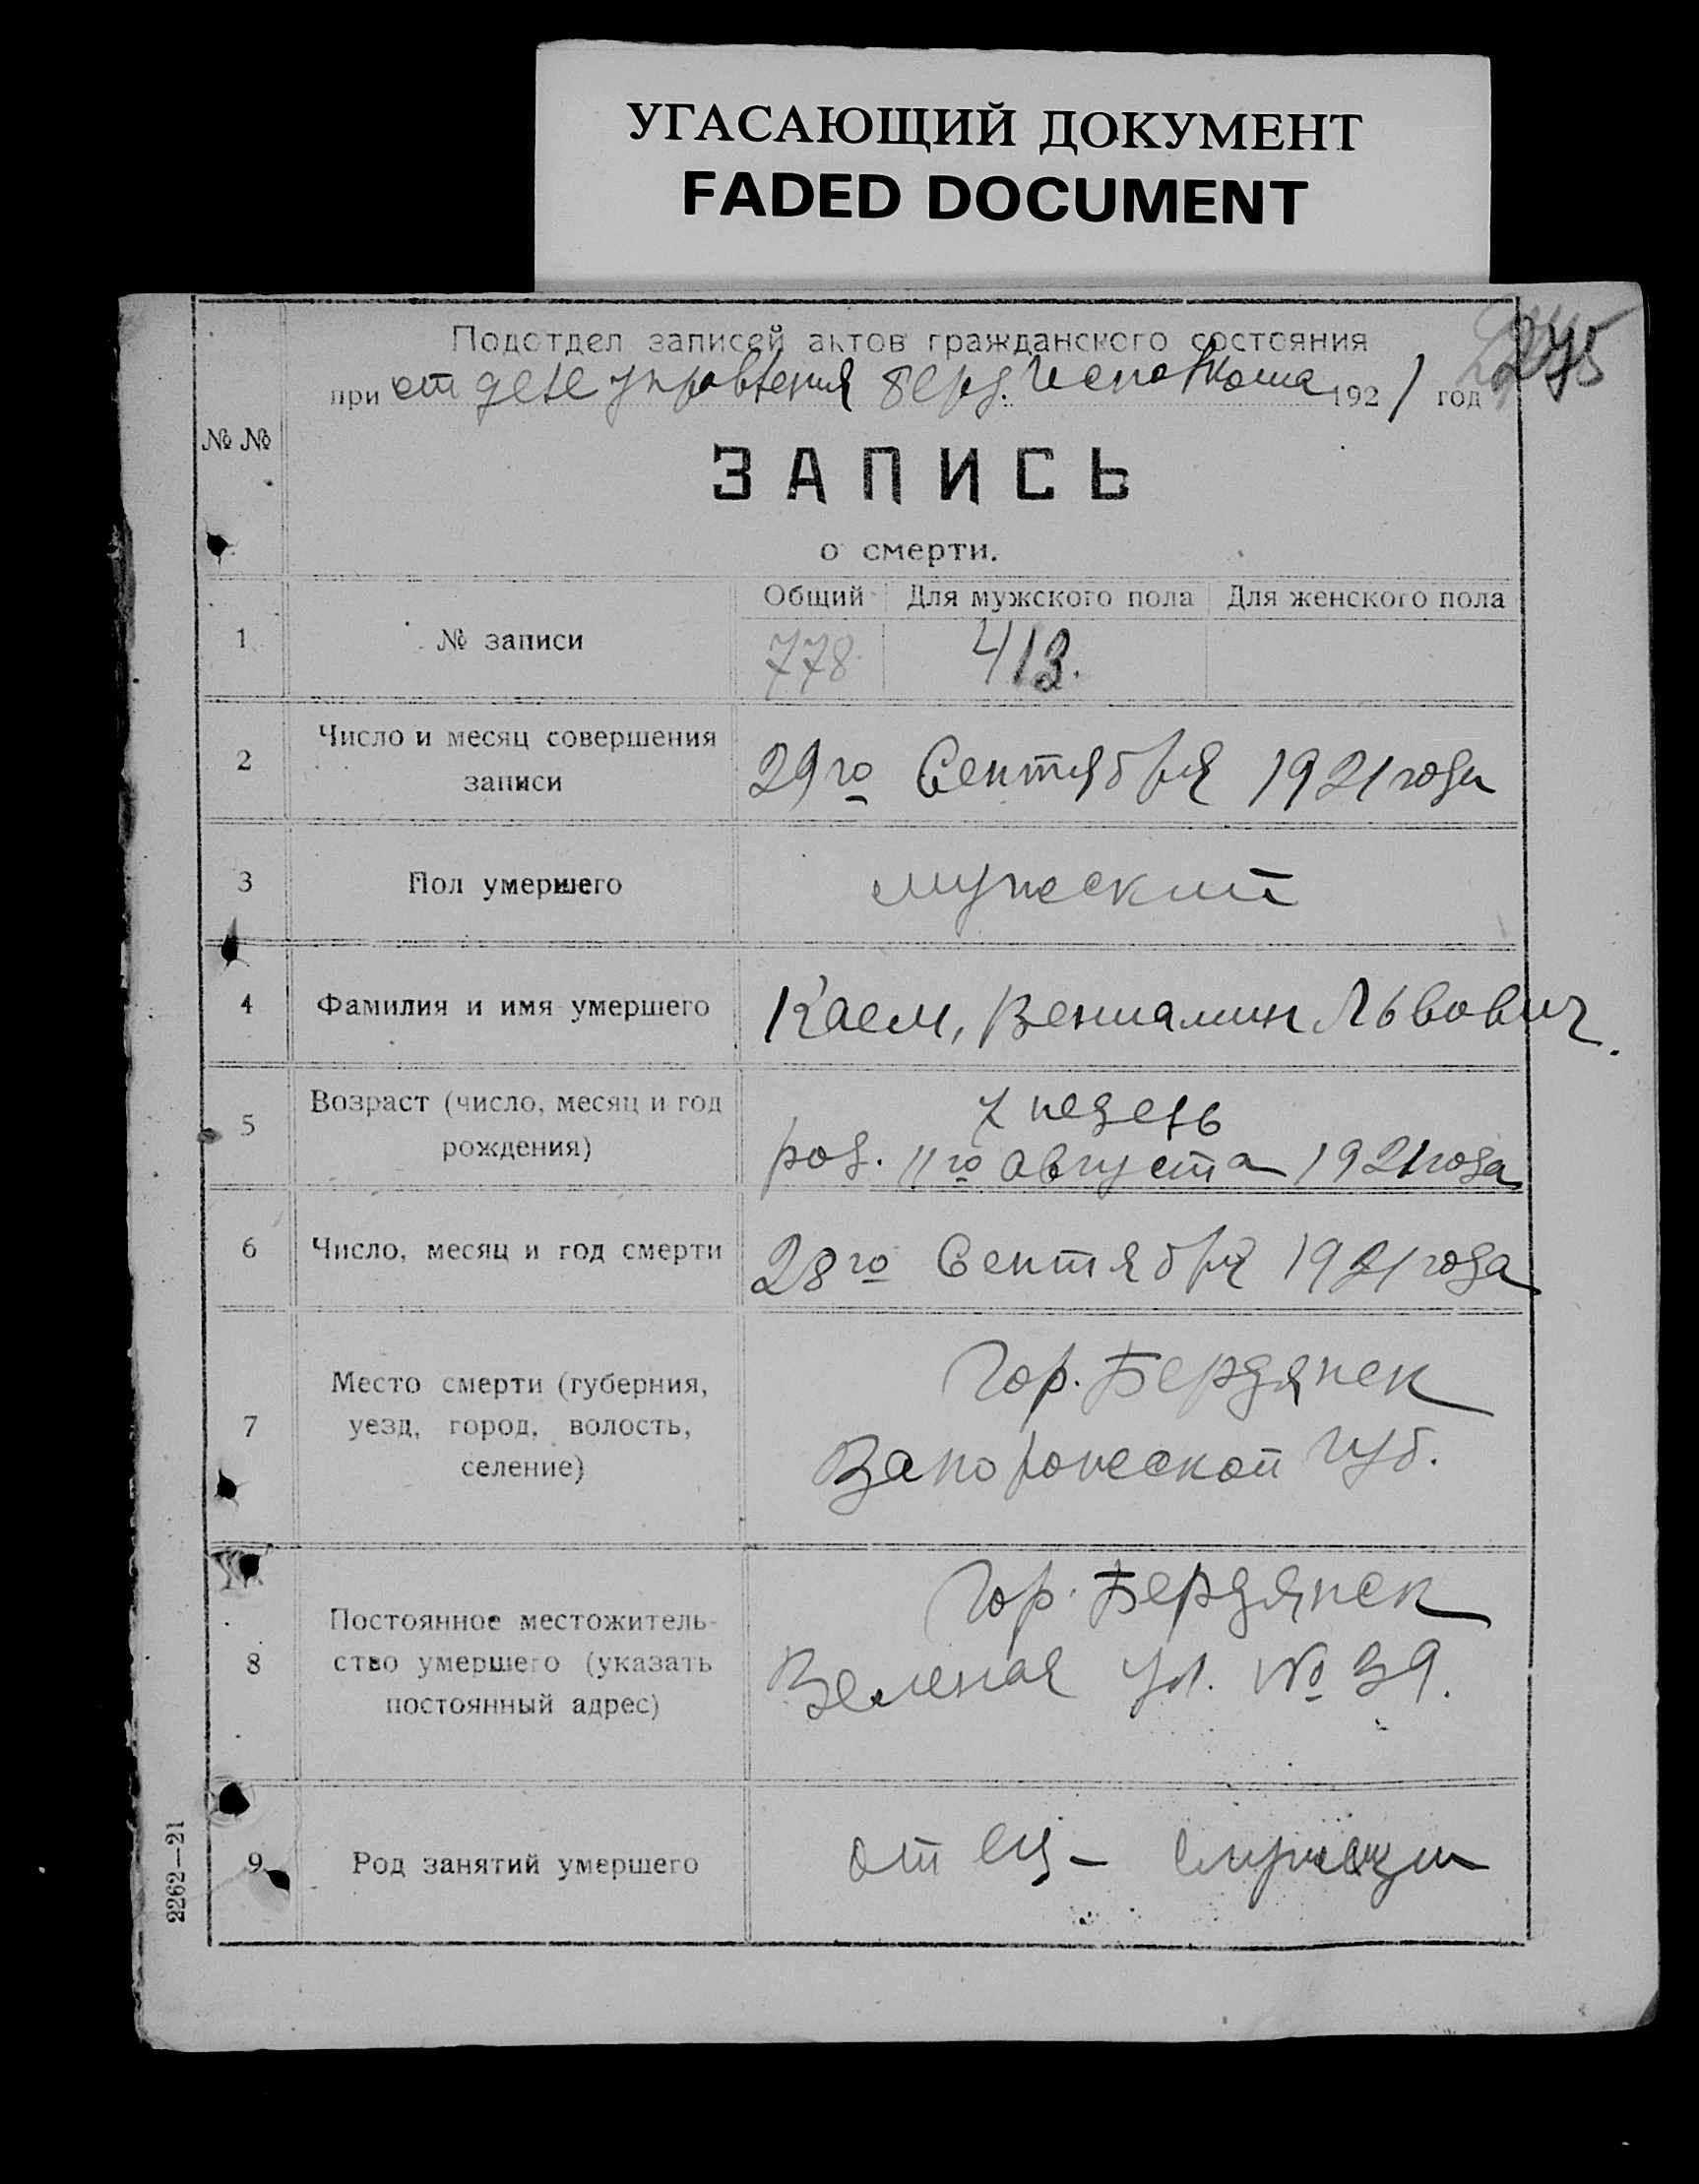 УГАСАЮЩИЙ ДОКУМЕНТ
FADED DOCUMENT
275
Подотдел записей актов гражданского состояния
при отделе управления Берд. Исполкома 1921 год
№ №
ЗАПИСЬ
о смерти.
Общий Для мужского пола Для женского пола
1 № записи 778. 413.
2 Число и месяц совершения
записи
29го Сентября 1921 года
3 Пол умершего мужеский
4 Фамилия и имя умершего Каем, Вениамин Львович.
5 Возраст (число, месяц и год
рождения)
7 недель
род. 11го августа 1921 года
6 Число, месяц и год смерти 28го Сентября 1921 года
7 Место смерти (губерния,
уезд, город, волость,
селение)
Гор. Бердянск
Запорожской губ.
8 Постоянное местожитель-
ство умершего (указать
постоянный адрес)
Гор. Бердянск
Зеленая ул. № 39.
9 Род занятий умершего отец –
2262—21